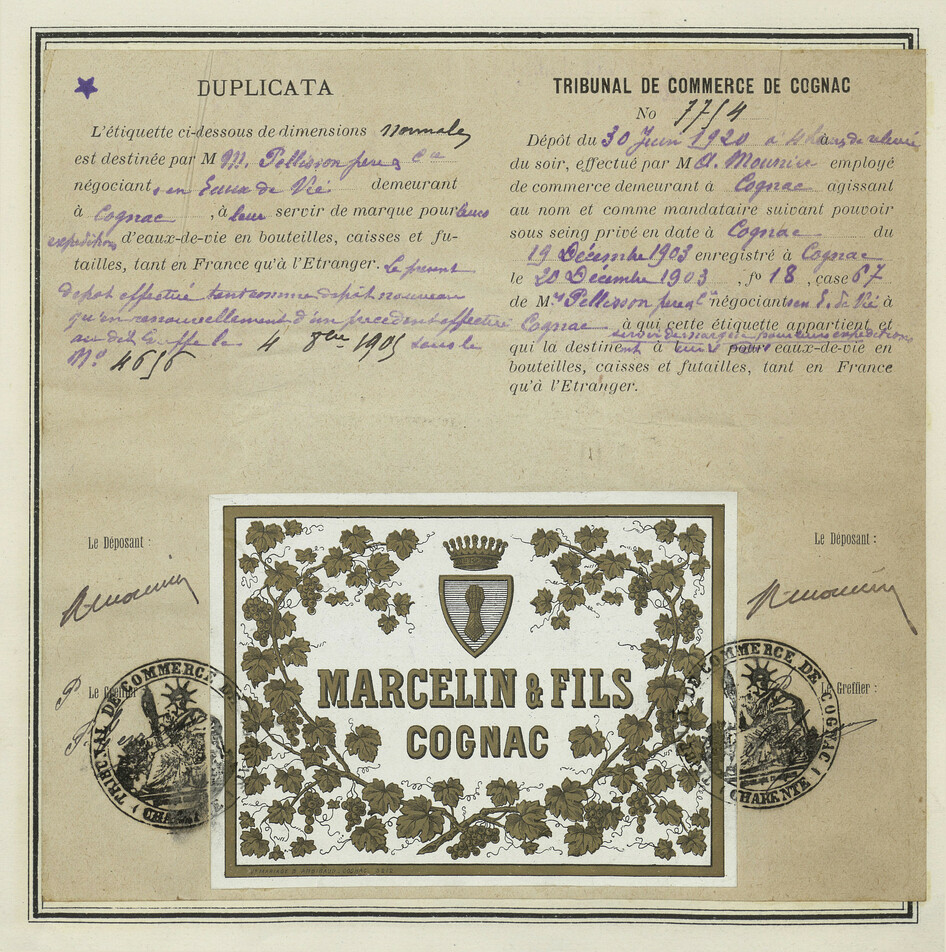 DUPLICATA
L'étiquette ci-dessous de dimensions normales
est destinée par M M. Pellisson père & Cie
négociants en Eaux de Vie demeurant
à Cognac, à leur servir de marque pour leurs
expéditions d'eaux-de-vie en bouteilles, caisses et fu-
tailles, tant en France qu'à l'Etranger. Le présent
dépôt effectué tant comme dépôt nouveau
qu'en renouvellement d'un précédent effectué
au dit Greffe le 4 8bre 1905 sous le
No. 4656
TRIBUNAL DE COMMERCE DE COGNAC
No 7754
Dépôt du 30 Juin 1920 à 4 heures de relevée
du soir, effectué par M A. Mounier employé
de commerce demeurant à Cognac agissant
au nom et comme mandataire suivant pouvoir
sous seing privé en date à Cognac du
19 Décembre 1903 enregistré à Cognac
le 20 Décembre 1903, fo 18, case 67
de Mrs Pellisson père & Cie négociants en E. de Vie à
Cognac à qui cette étiquette appartient et
servir de marque pour leurs expéditions
qui la destinent à leur pour eaux-de-vie en
bouteilles, caisses et futailles, tant en France
qu'à l'Etranger.
Le Déposant :
Le Greffier :
TRIBUNAL DE COMMERCE DE COGNAC
(CHARENTE)
MARCELIN & FILS
COGNAC
Le Déposant :
Le Greffier :
TRIBUNAL DE COMMERCE DE COGNAC
(CHARENTE)